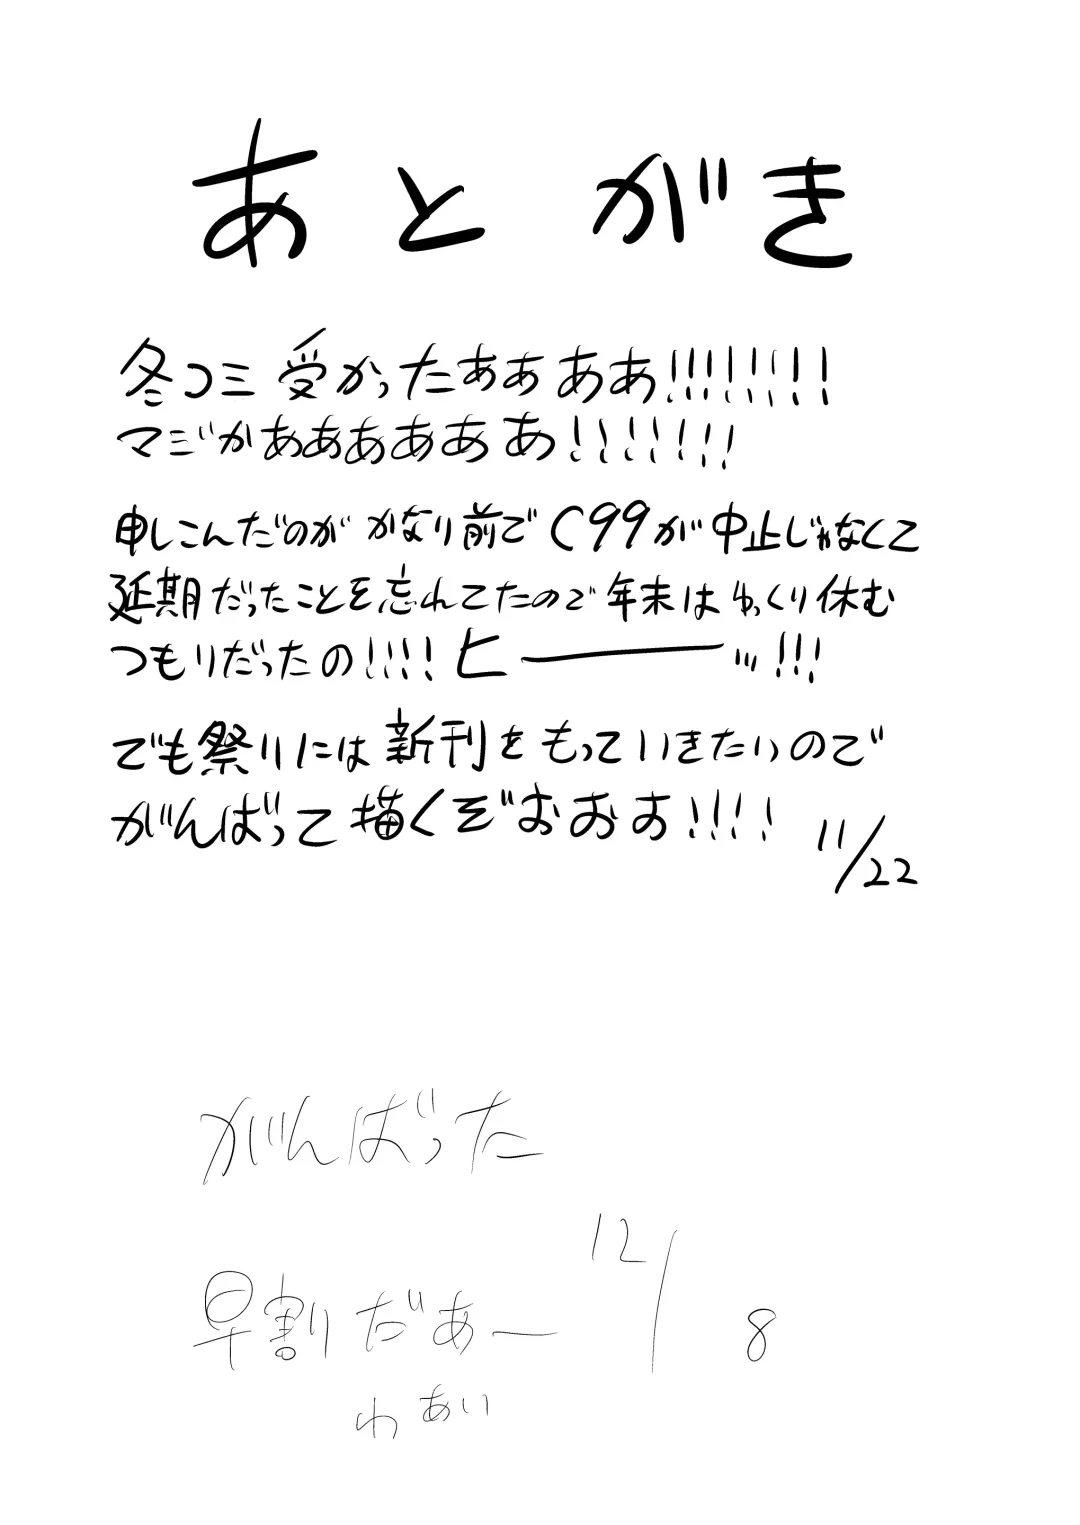 あとがき
冬コミ受かったぁぁああ!!!!!!!!
マジかあああああぁあ!!!!!!!
申しこんだのがかなり前でC99が中止じゃなくて
延期だったことを忘れてたので年末はゆっくり休む
つもりだったの!!!!ヒーーーッ!!!
でも祭りには新刊をもっていきたいので
がんばって描くぞおおお!!!!
11/22
がんばった
12/8
早割だぁー
わぁい